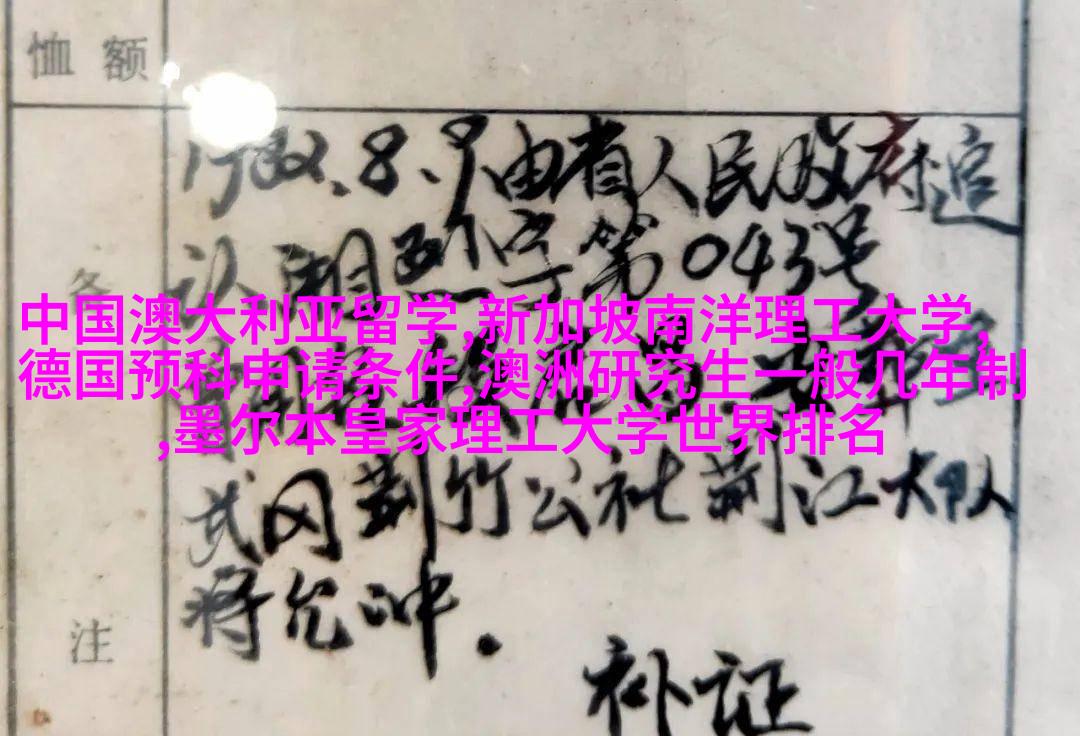 恤额
1982.8.9由省人民政府追
认湘烈字第043号
备
中国澳大利亚留学,新加坡南洋理工大学,
德国预科申请条件,澳洲研究生一般几年制
,墨尔本皇家理工大学世界排名
武冈荆竹公社荆江大队
蒋允冲.
注
补证